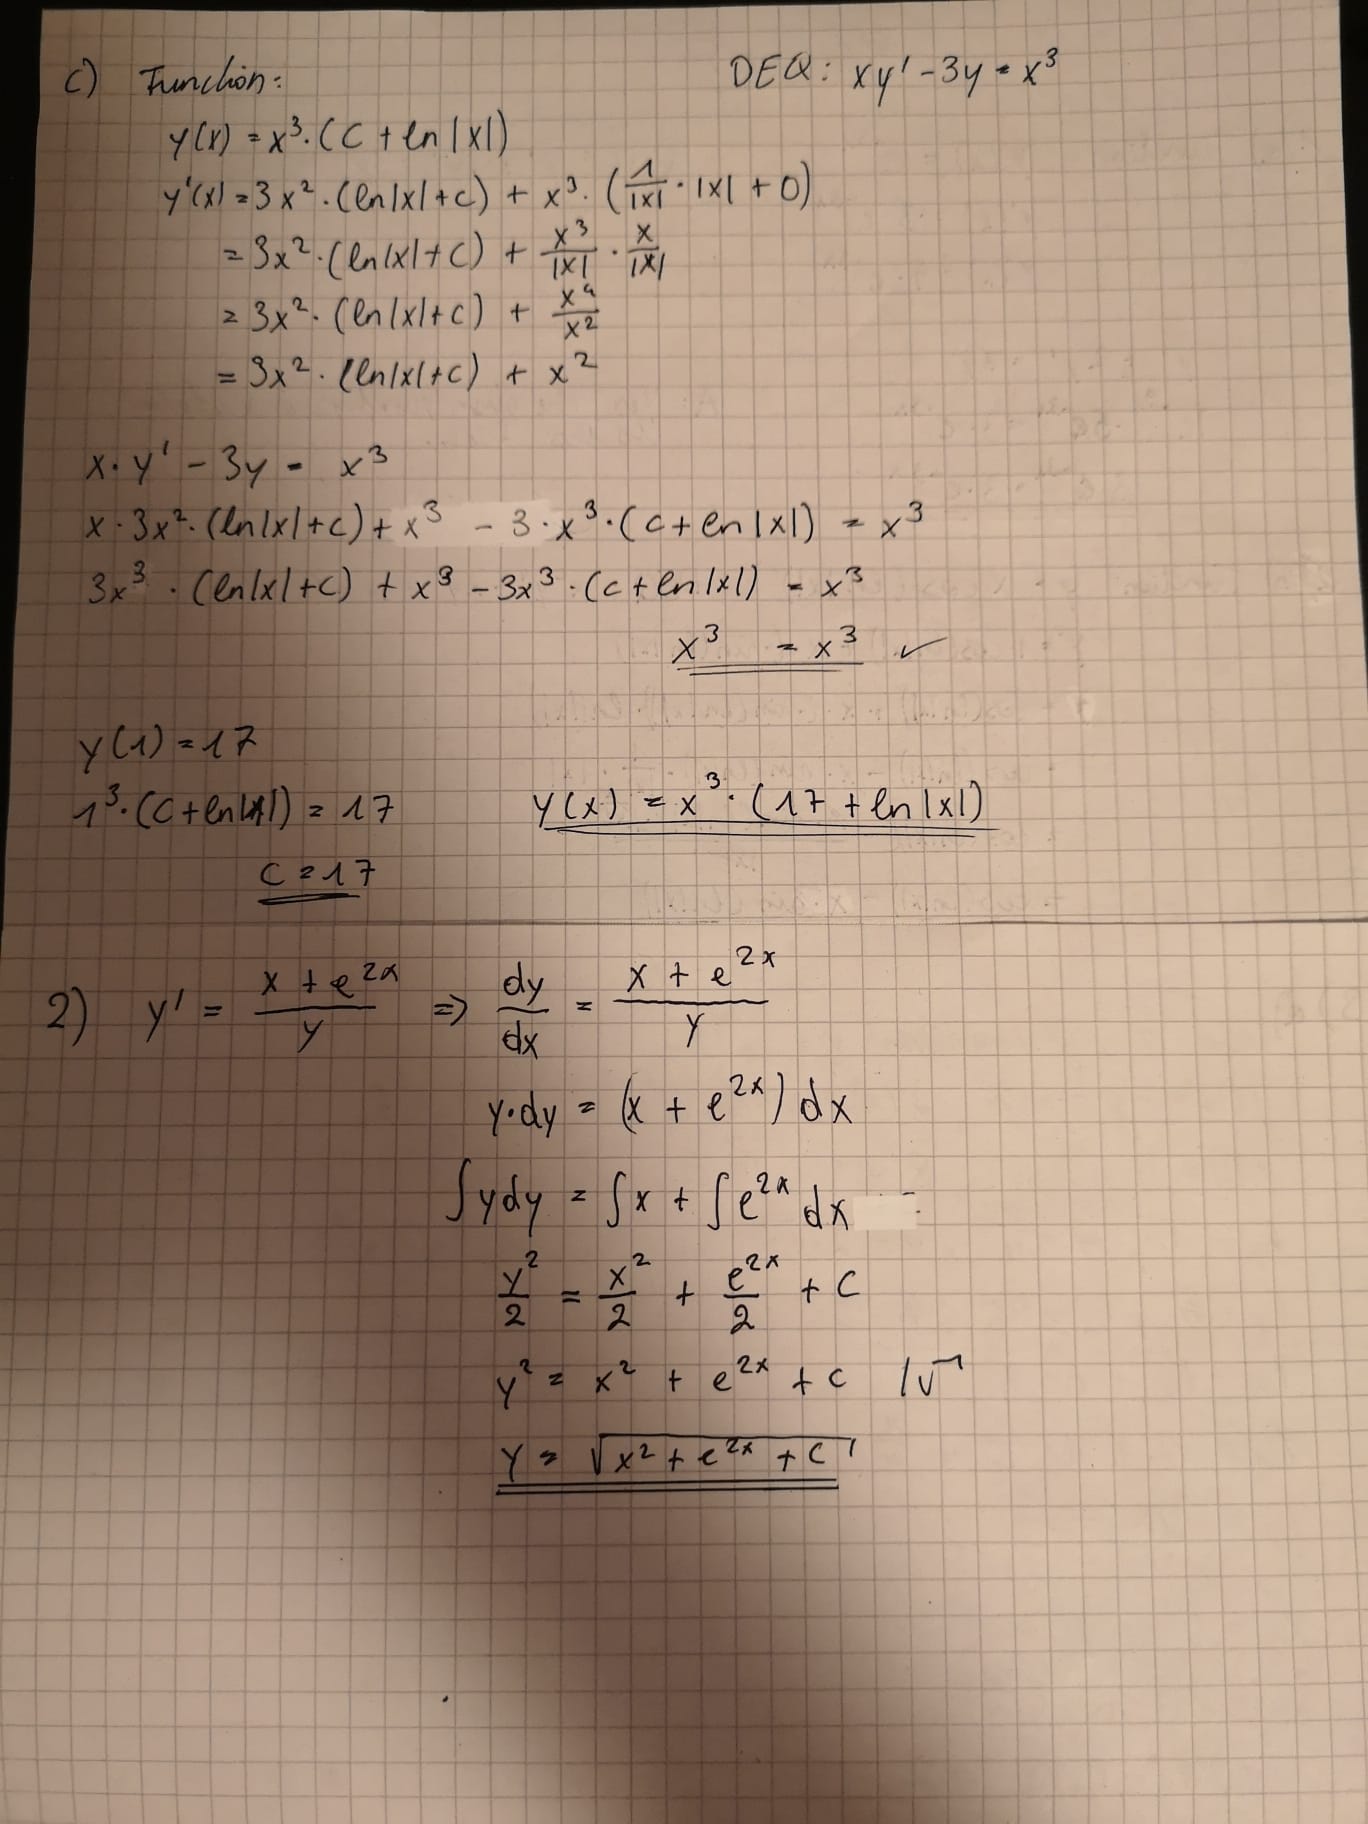 c) Function: DEQ: xy' - 3y = x³
y(x) = x³·(C + ln|x|)
y'(x) = 3x²·(ln|x|+c) + x³·(1/|x| · |x| + 0)
= 3x²·(ln|x|+c) + x³/|x| · x/|x|
= 3x²·(ln|x|+c) + x⁴/x²
= 3x²·(ln|x|+c) + x²
x·y' - 3y = x³
x·3x²·(ln|x|+c) + x³ - 3·x³·(c+ln|x|) = x³
3x³·(ln|x|+c) + x³ - 3x³·(c+ln|x|) = x³
x³ = x³ ✓
y(1) = 17
1³·(C+ln|1|) = 17 y(x) = x³·(17+ln|x|)
C = 17
2) y' = (x + e^(2x))/y => dy/dx = (x + e^(2x))/y
y·dy = (x + e^(2x)) dx
∫ydy = ∫x + ∫e^(2x) dx
y²/2 = x²/2 + e^(2x)/2 + C
y² = x² + e^(2x) + c /√
y = √(x² + e^(2x) + C)